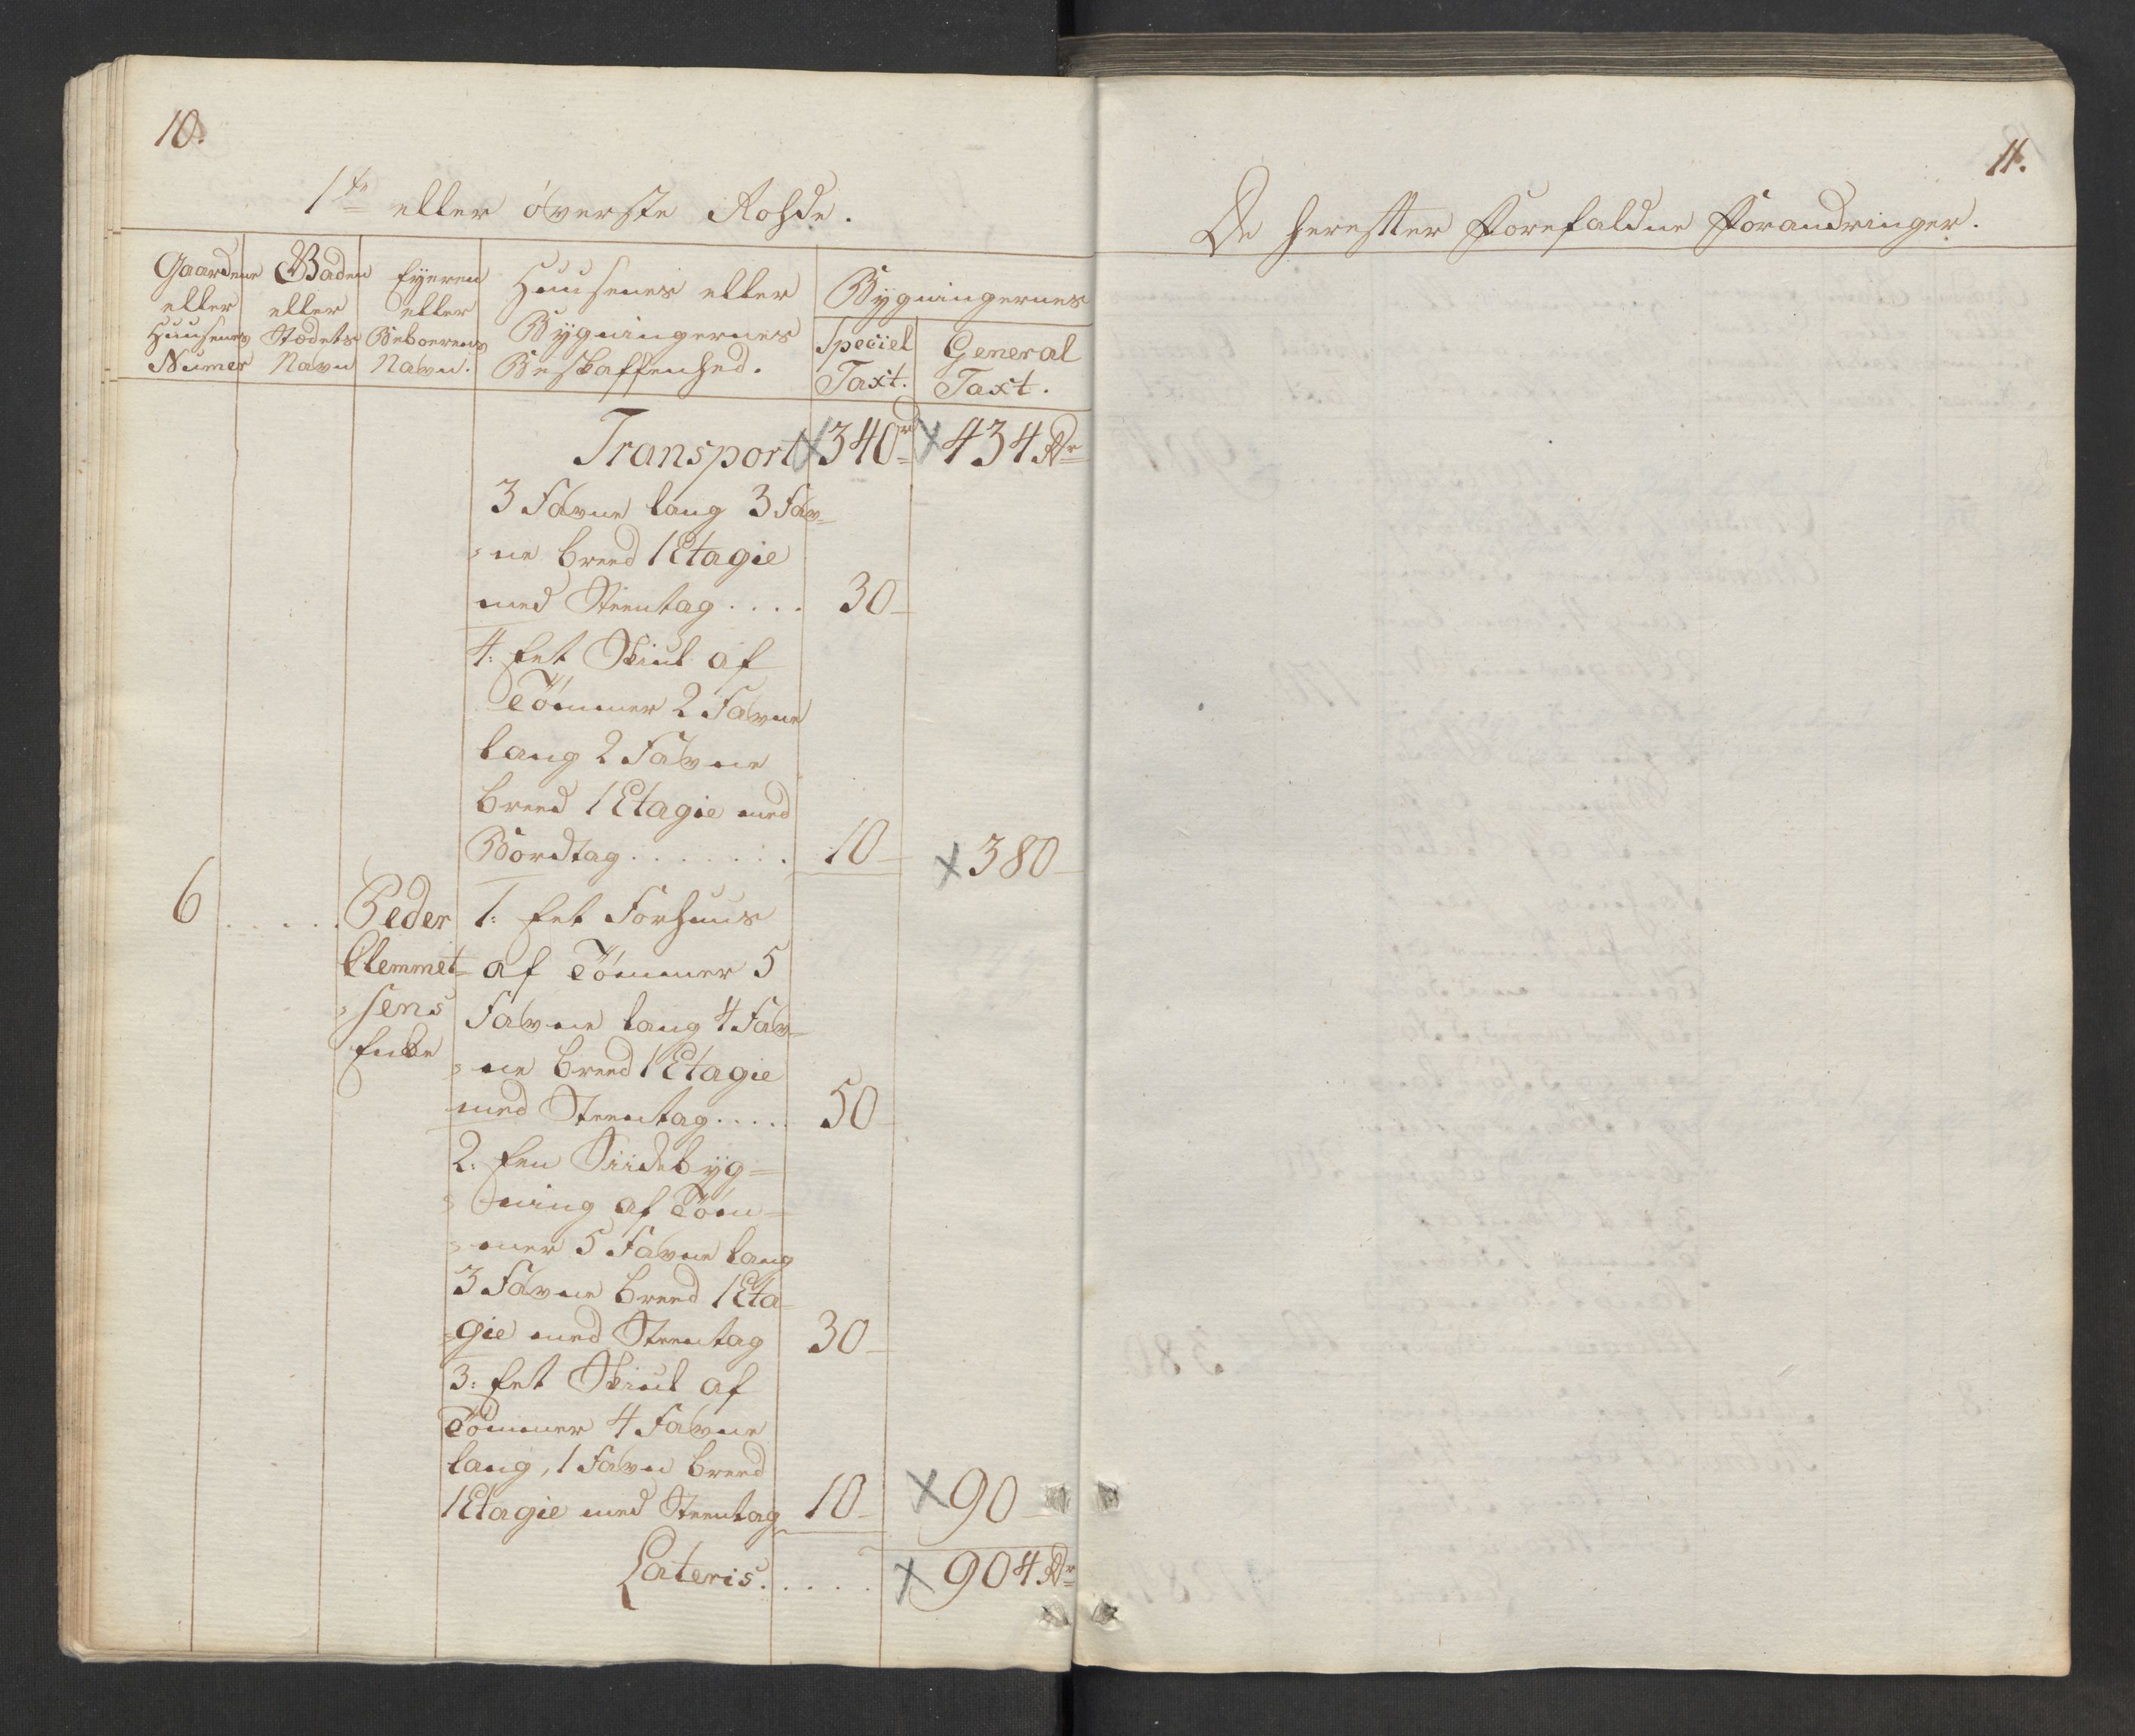 10.
1te eller överste Rohde.
Gaardene eller Huusenes Numer
Gaden eller Stædets Navn
Eyeren eller Beboerens Navn.
Huusenes eller Bygningernes Beskaffenhed.
Bygningernes
Speciel Taxt.
General Taxt.
Transport 340rd 434 Rdr
3 Favne lang 3 Fav=
=ne breed 1 Etagie
med Steentag .... 30
4: Eet Skiul af
Tømmer 2 Favne
lang 2 Favne
breed 1 Etagie med
Bordtag ....... 10 380
6 ..... Peder 1: Eet Forhuus
Clemmet= af Tømmer 5
=sens Favne lang 4 Fav=
Enke =ne breed 1 Etagie
med Steentag ..... 50
2: Een Siidebyg=
=ning af Töm=
=mer 5 Favne lang
3 Favne breed 1 Eta=
=gie med Steentag 30
3: Eet Skiul af
Tømmer 4 Favne
lang, 1 Favn breed
1 Etagie med Steentag 10 90
Lateris ..... 904 Rdr
11.
De herefter Forefaldne Forandringer.